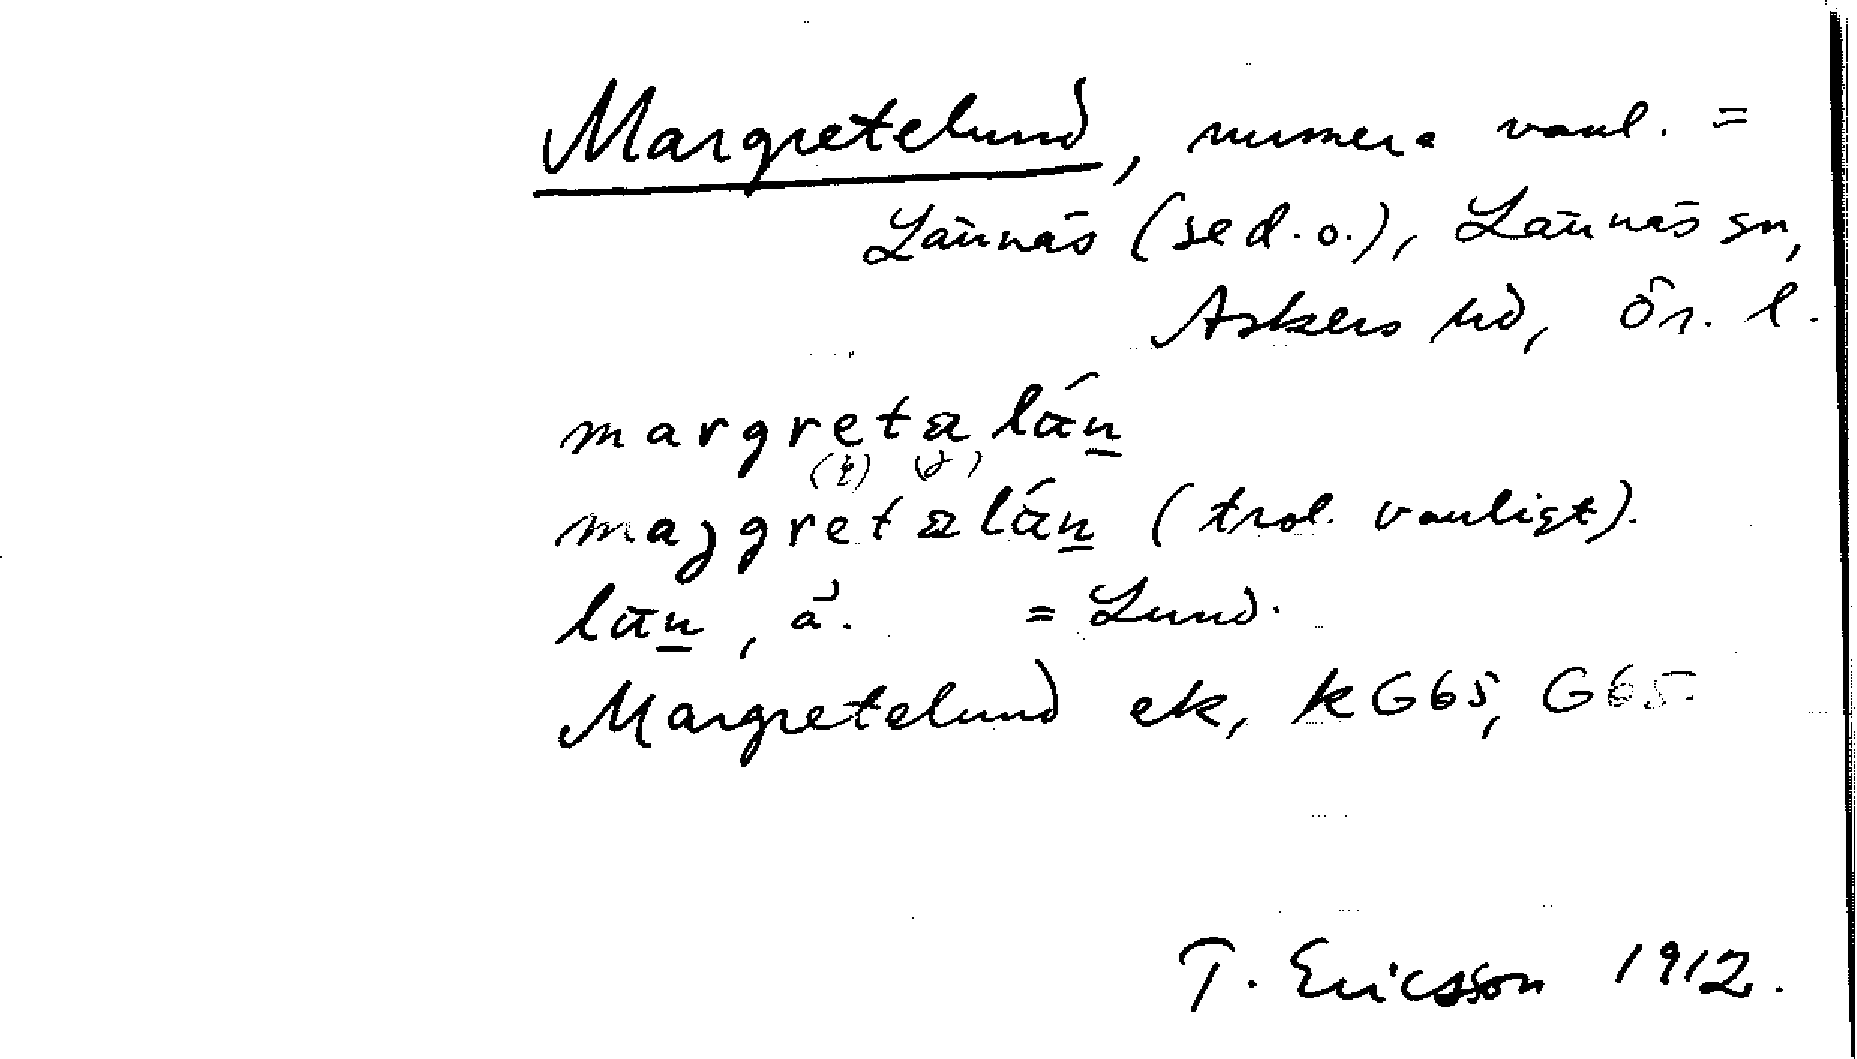 Margretelund, numera vanl. =
Lännäs (se d. o.), Lännäs sn,
Askers hd, Ör. l.
margretalán
margretalán (trol. vanligt).
lan, a. = Lund.
Margretelund ek, kG65, G65.
T. Ericsson 1912.